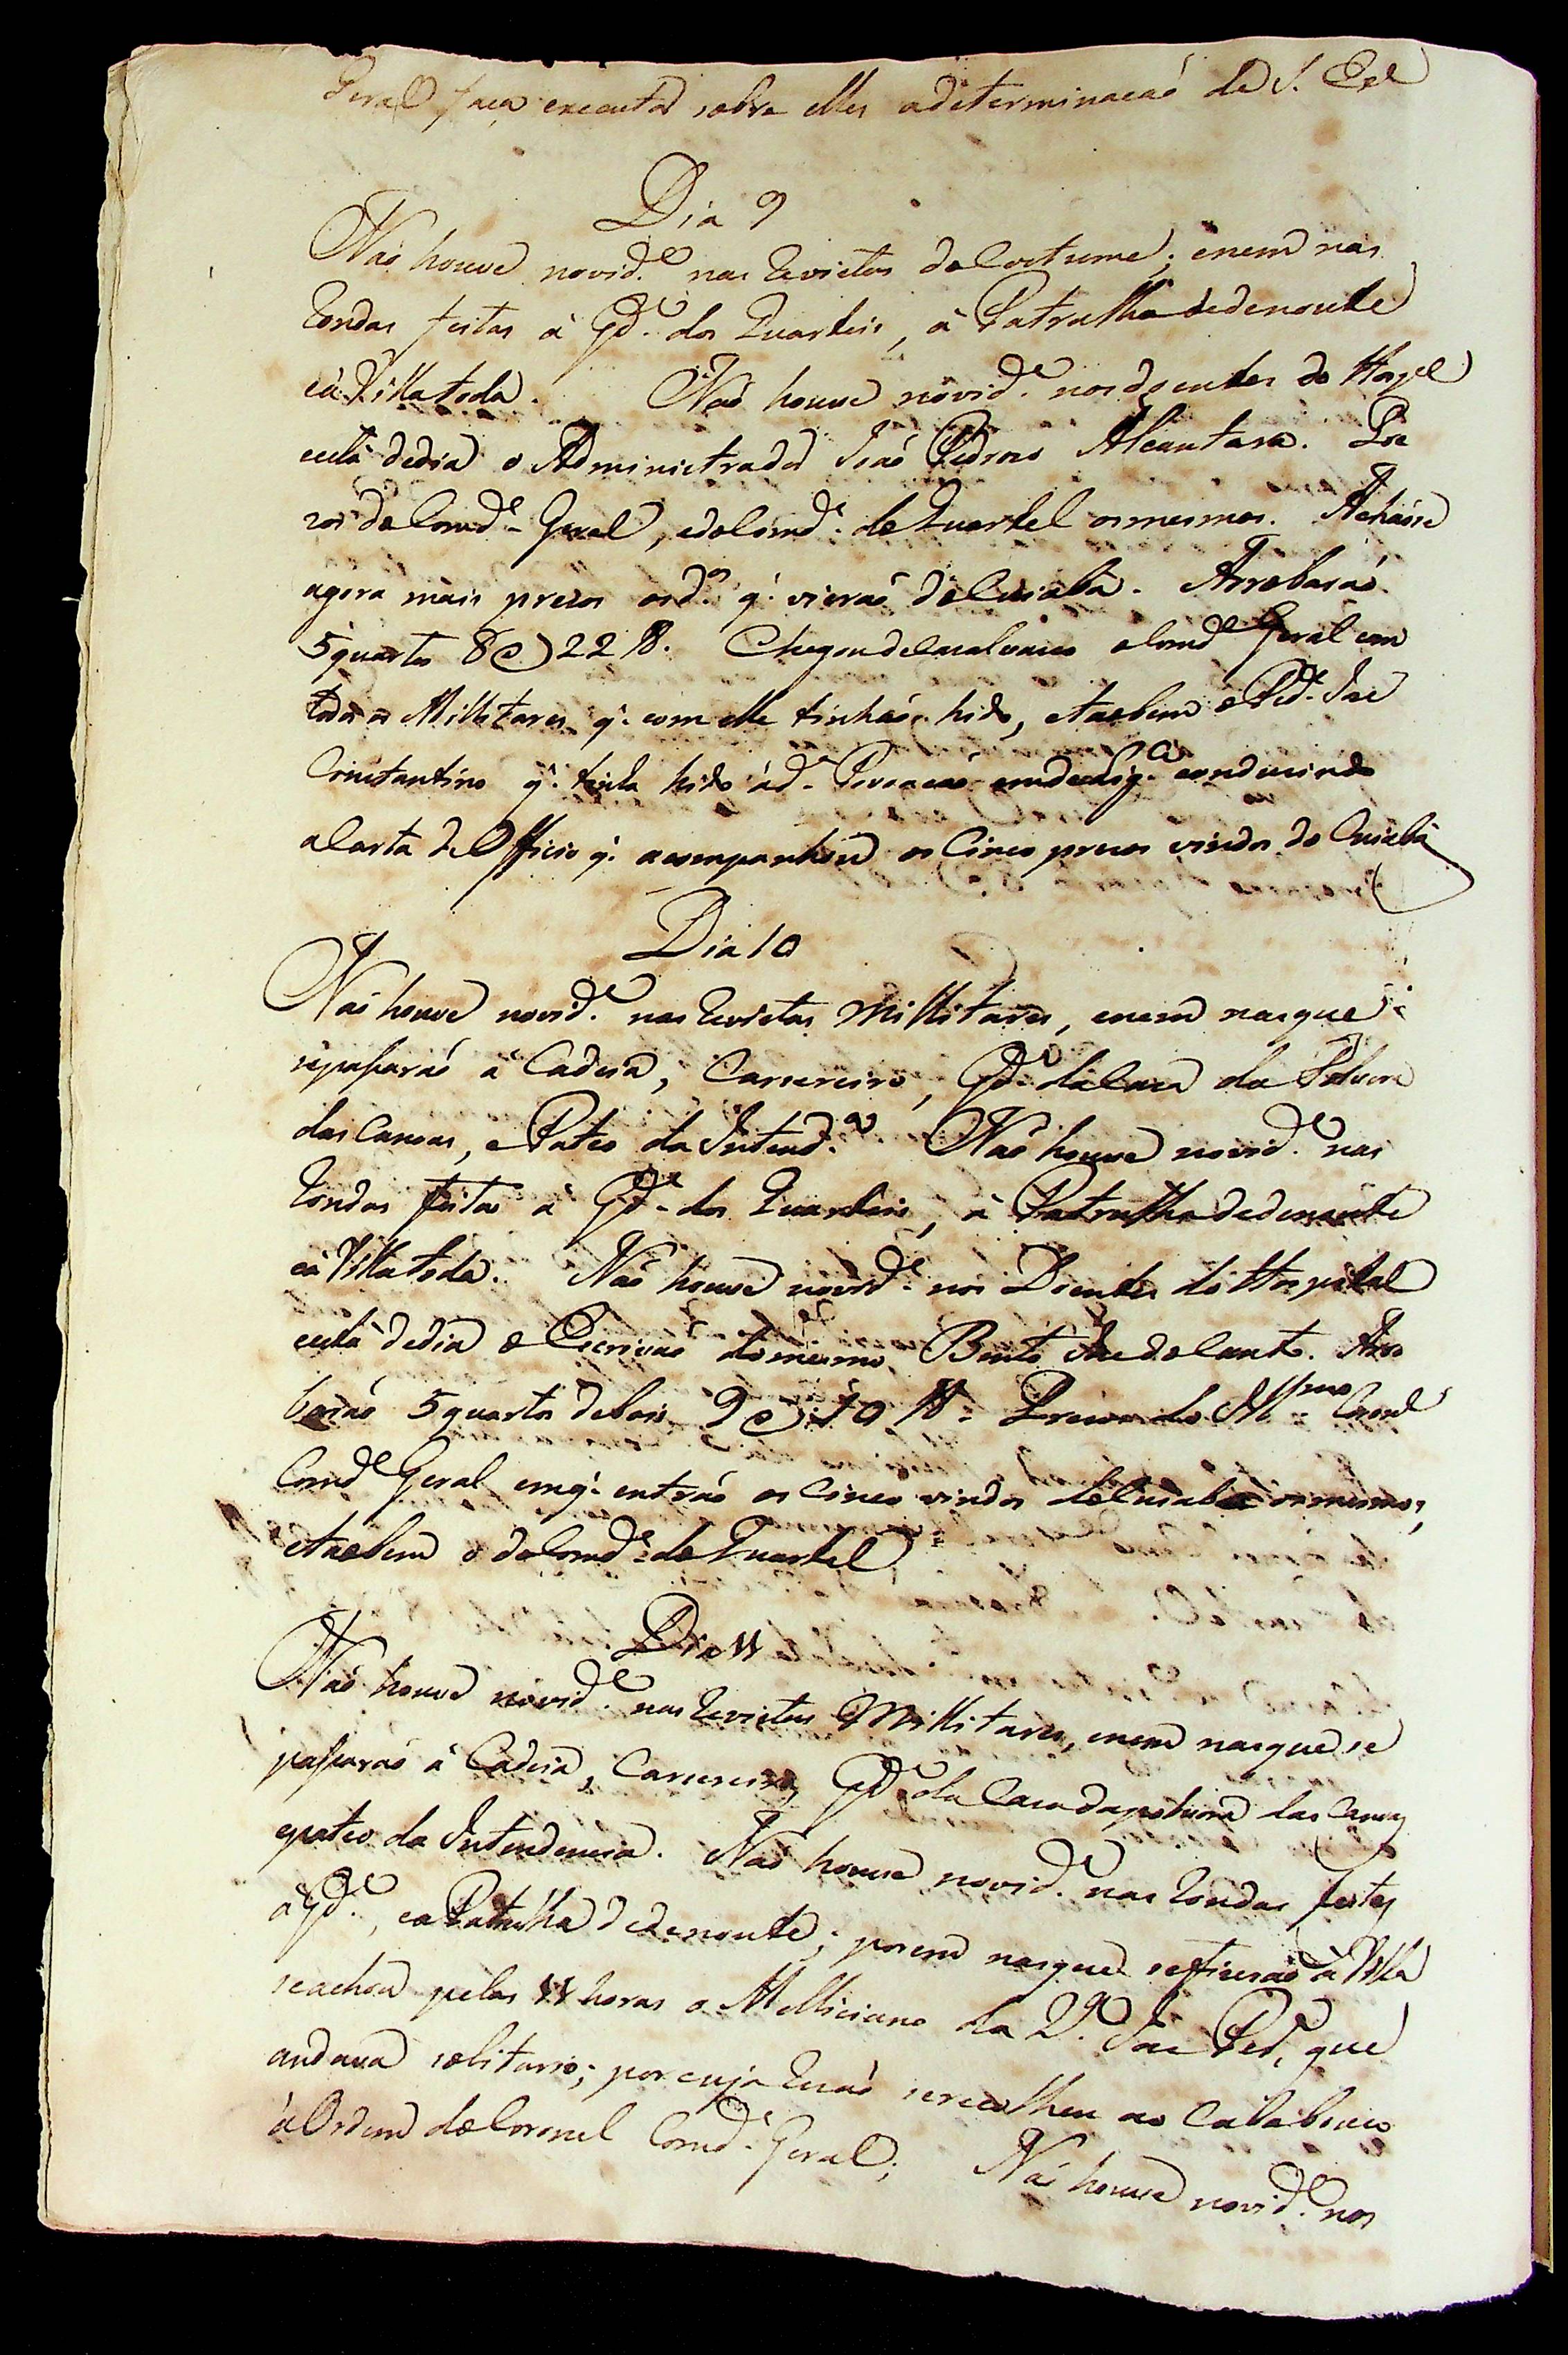 Geral faça executar sobre elles adeterminacaõ de S. Exª
Dia 9
Naõ houve novid.e nas Revistas do Costume; enem nas
Rondas feitas á Gd.e dos Quarteis, á Patrulha dedenoute
eá Villa toda. Naõ houve novid.e nos doentes do Hospl
está dedia o Administrador Joaõ Pedrozo Alcantara. Pre
zos do Comd.e Geral, edoComd.e do Quartel osmesmos. Achaõse
agora mais prezos q. vieraõ doCuiabá. Arrobaraõ
5 quartos 8 @ 22 lb. Chegou o Comd.e Geral com
todos os Millitares q. com elle tinhaõ hido, etaobem o Ped. Joze
Constantino q. tinha hido ád.ª Povoacaõ conduzindo
aCarta deOfficio q. acompanhou os Cinco prezos vindos do Cuiabá
Dia 10
Naõ houve novid.e nas Revistas Millitares, enem nasque
sepassaraõ á Cadeia, Carcereiro, Gd.e daCaza da Polvora
das Canoas, e Pateo da Intend.ª Naõ houve novid.e nas
Rondas feitas á Gd.e dos Quarteis, á Patrulha dedenoute
eá Villa toda. Naõ houve novid.e nos Doentes do Hospital
está dedia o Escrivaõ domesmo Bento Joze doCanto. Arro
baraõ 5 quartos deboi 9 @ 10 lb. Prezos do Illmo Coronel
Comd.e Geral emq. entraõ os Cinco vindos doCuiabá osmesmos,
etaobem o doComd.e do Quartel
Dia 11
Naõ houve novid.e nas Revistas Millitares, enem nasque se
passaraõ á Cadeia, Carcereiro, Gd.e da Caza dapolvora das Canoas
epateo da Intendencia. Naõ houve novid.e nas Rondas feitas
áGd.e, eaPatrulha dedenoute; porem nasque sefizeraõ á Villa
seachou pelas 11 horas o Milliciano da 2.ª Joze Ped., que
andava solitario; porcuja Rezaõ serecolheu ao Calabouco
áOrdem doCoronel Comd.e Geral; Naõ houve novid.e nos